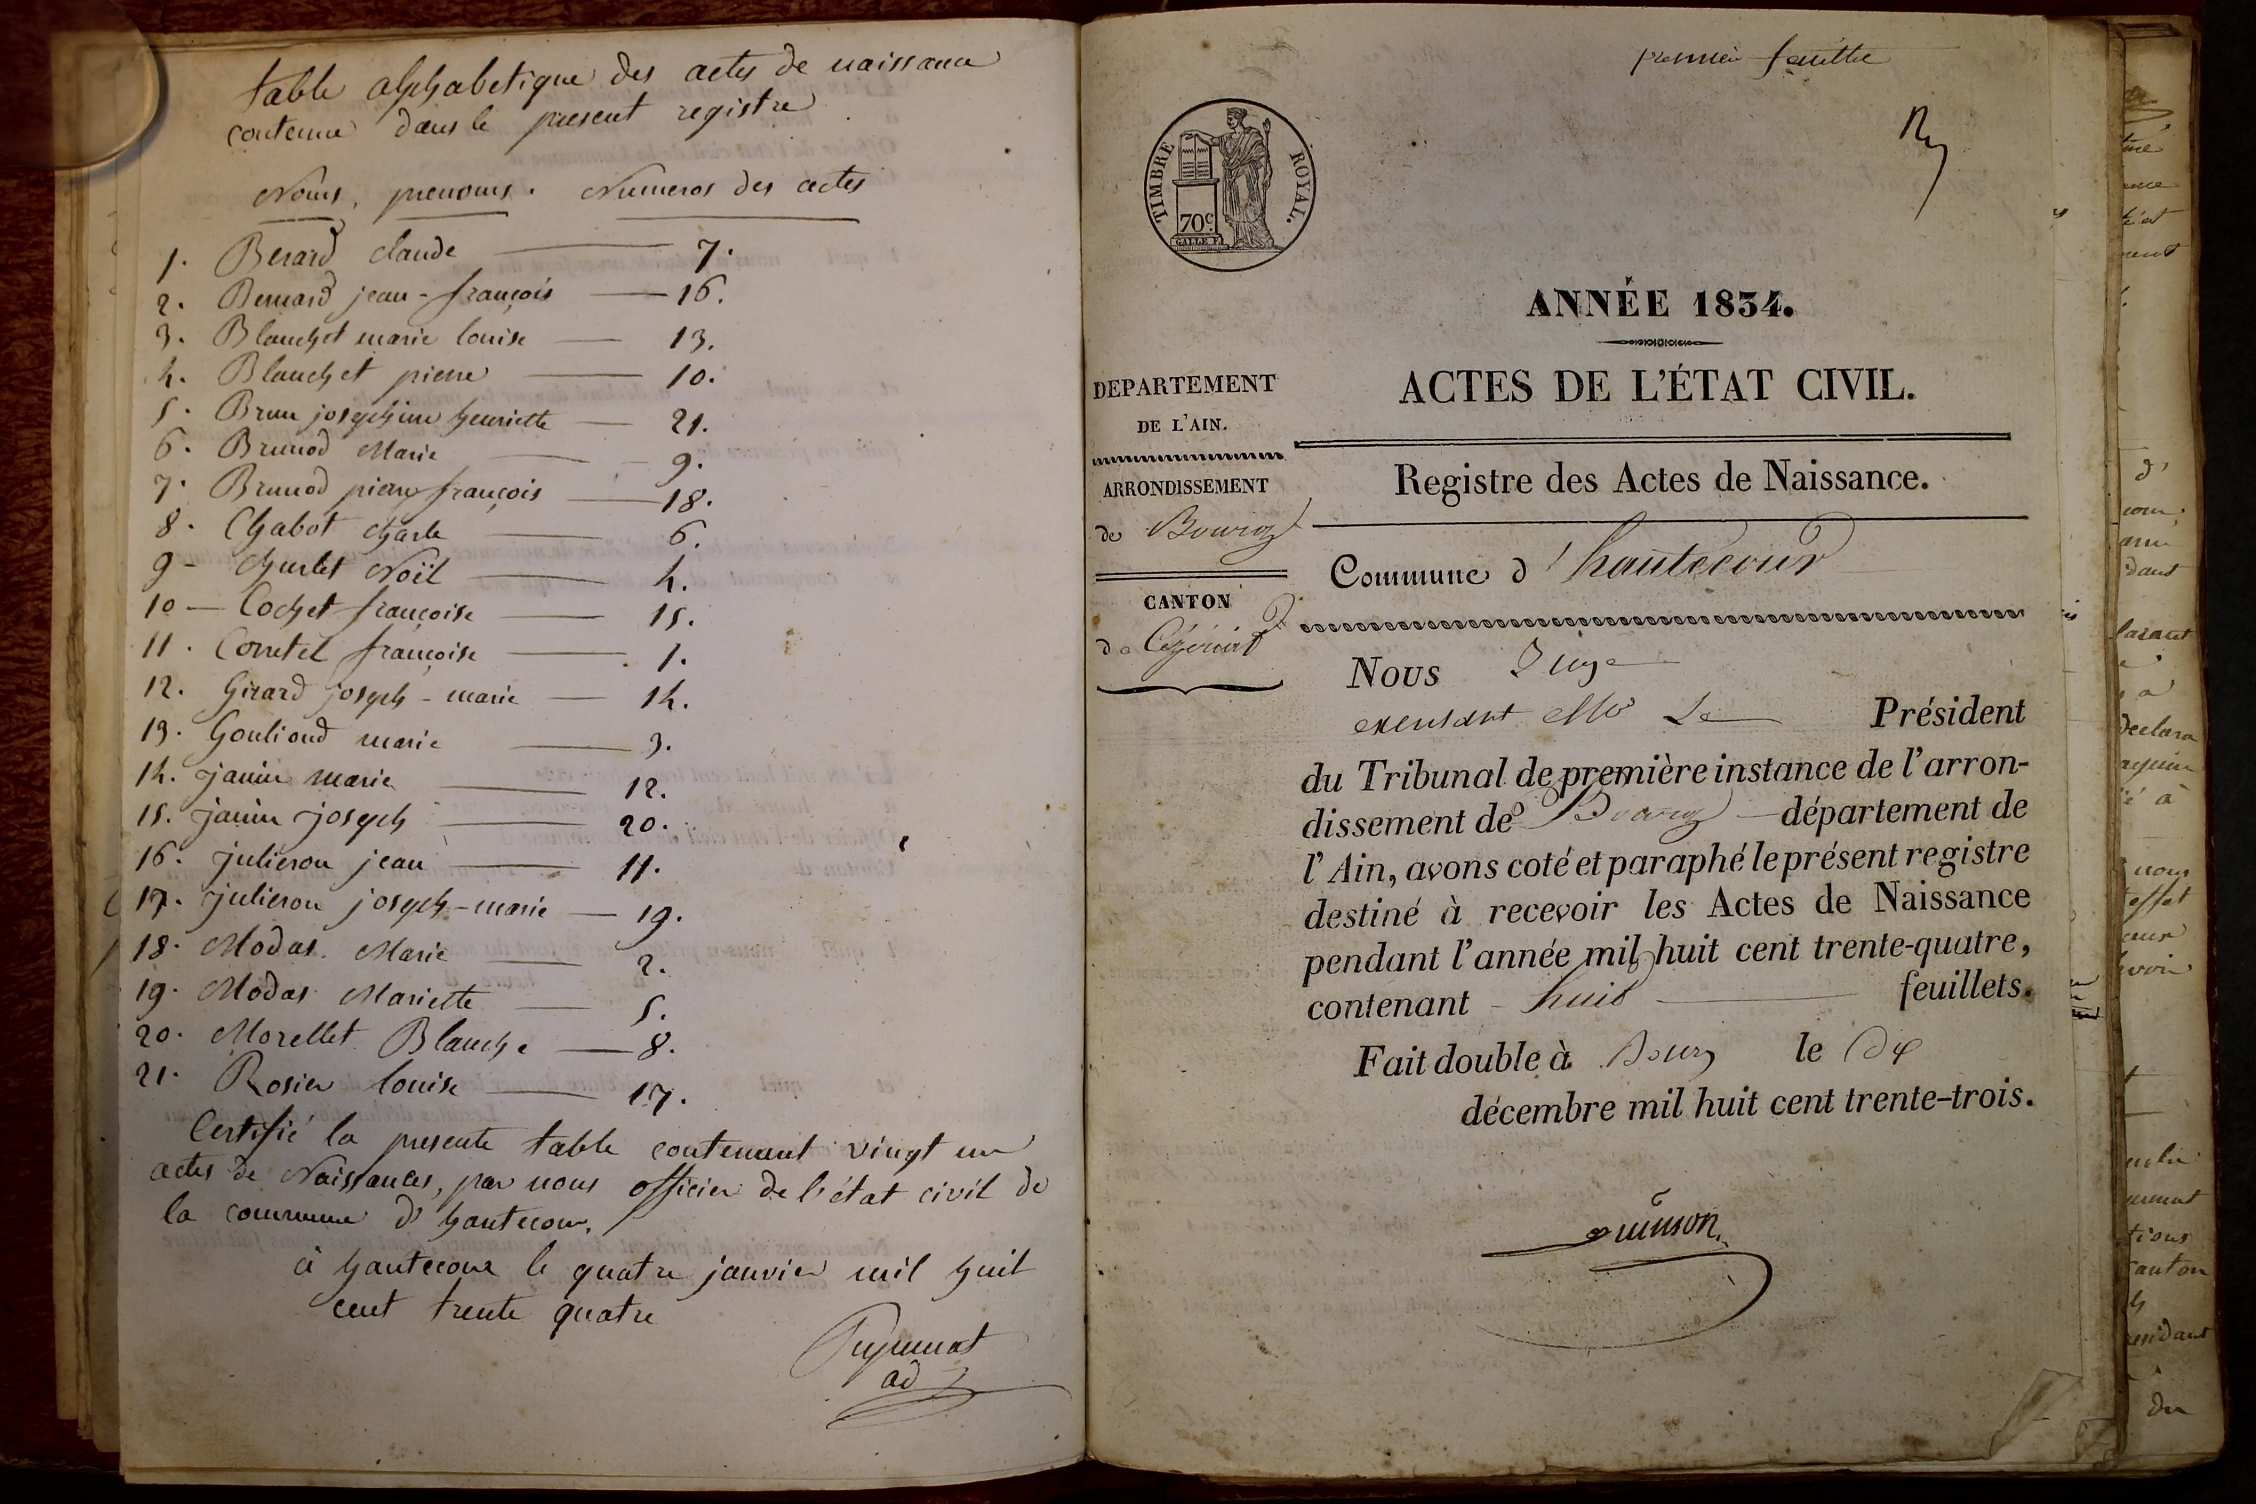 table alphabetique des actes de naissance
contenue dans le present registre
Noms, prenoms. Numeros des actes
1. Berard claude 7.
2. Bernard jean-françois 16.
3. Blanchet marie louise 13.
4. Blanchet pierre 10.
5. Brun josephine henriette 21.
6. Brunod Marie 9.
7. Brunod pierre françois 18.
8. Chabot charle 6.
9 - Noël 4.
10 - Cochet françoise 15.
11. Corretel françoise 1.
12. Girard joseph-marie 14.
13. Gouliond marie 3.
14. janin marie 12.
15. janin joseph 20.
16. julieron jean 11.
17. julieron joseph-marie 19.
18. Modas. Marie 2.
19. Modas Mariette 5.
20. Morellet Blanche 8.
21. Rosier louise 17.
Certifié la presente table contenant vingt un
actes de Naissances, par nous officier de l'état civil de
la commune d'hautecour.
à hautecour le quatre janvier mil huit
cent trente quatre
ad
premier feuillet
TIMBRE ROYAL.
70c
ANNÉE 1834.
ACTES DE L'ÉTAT CIVIL.
DEPARTEMENT
DE L'AIN.
ARRONDISSEMENT
de Bourg
CANTON
de Ceyzériat
Registre des Actes de Naissance.
Commune d'hautecour
Nous Juge
Mr Le Président
du Tribunal de première instance de l'arron-
dissement de Bourg département de
l'Ain, avons coté et paraphé le présent registre
destiné à recevoir les Actes de Naissance
pendant l'année mil huit cent trente-quatre,
contenant huit feuillets.
Fait double à Bourg le dix
décembre mil huit cent trente-trois.